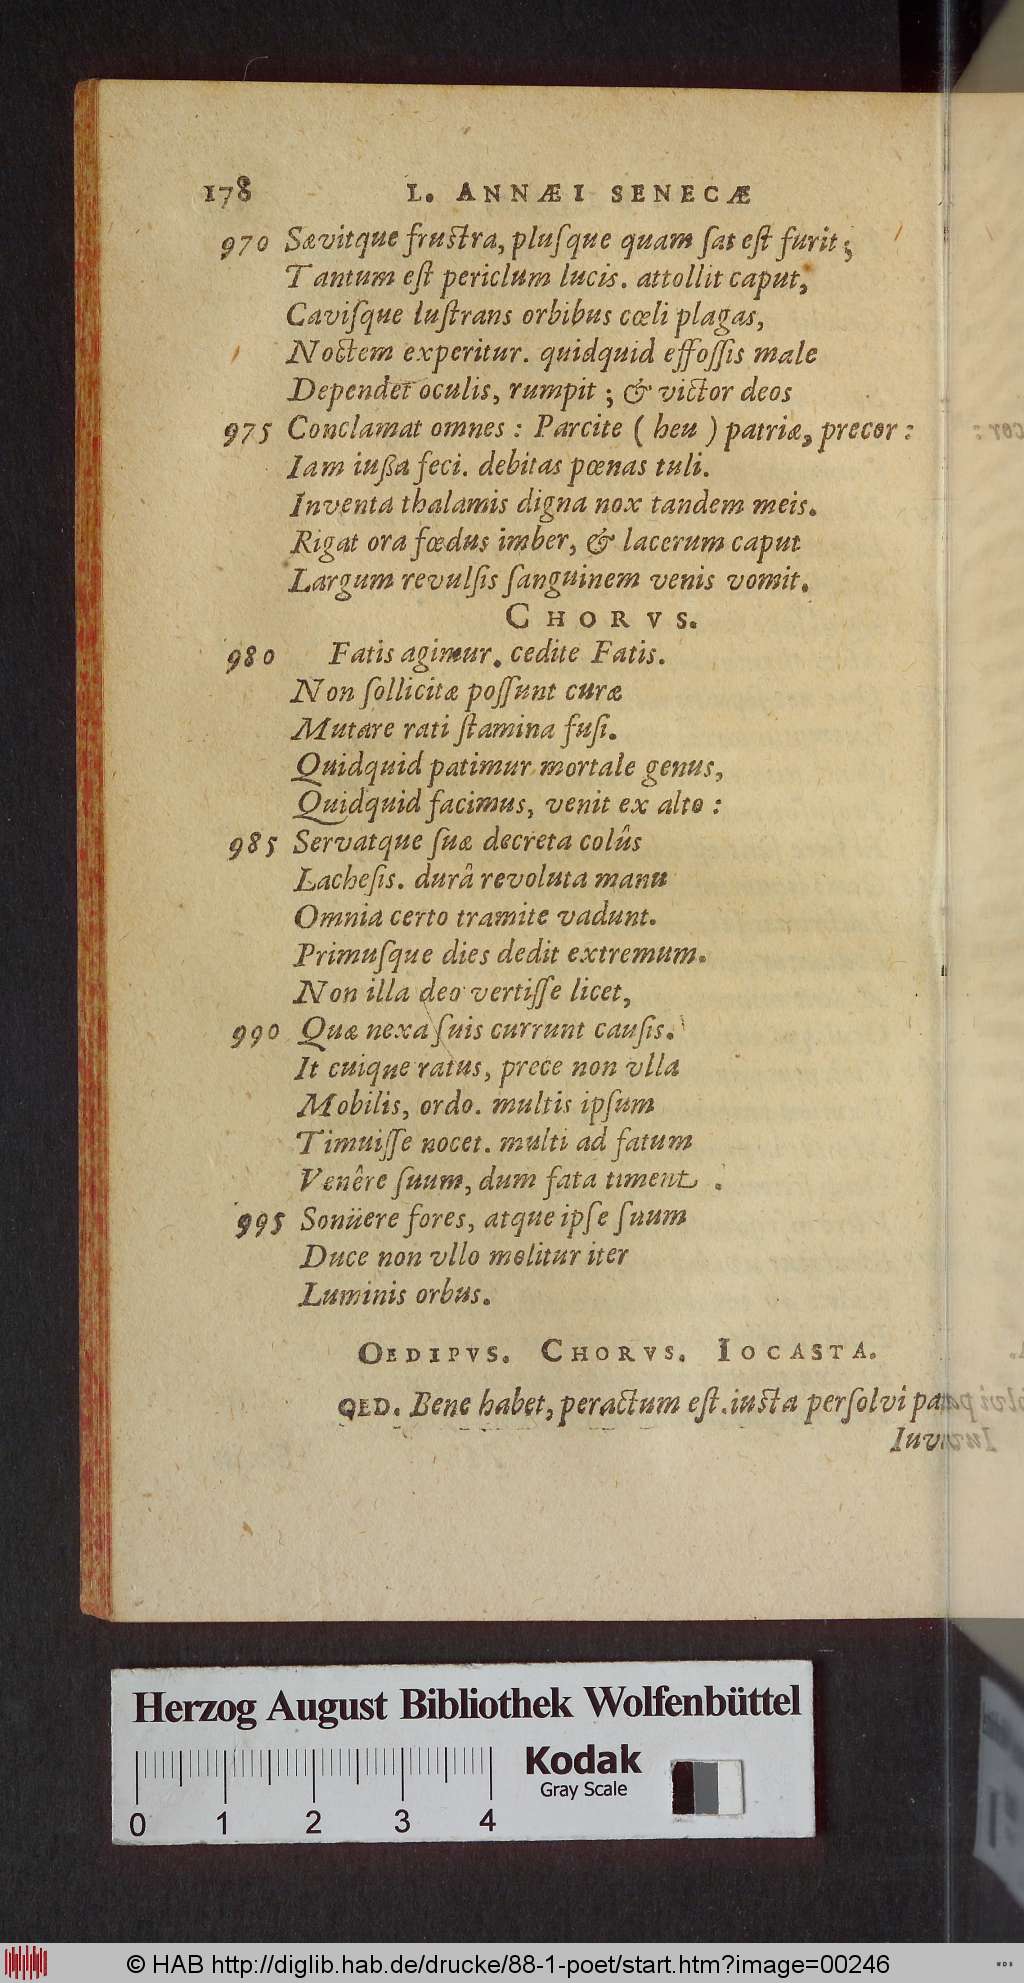 178 L. ANNÆI SENECÆ
970 Sævitque frustra, plusque quam sat est furit;
Tantum est periclum lucis. attollit caput,
Cavisque lustrans orbibus cœli plagas,
Noctem experitur. quidquid effossis male
Dependet oculis, rumpit; & victor deos
975 Conclamat omnes: Parcite (heu) patriæ, precor:
Iam iußa feci. debitas pœnas tuli.
Inventa thalamis digna nox tandem meis.
Rigat ora fœdus imber, & lacerum caput
Largum revulsis sanguinem venis vomit.
CHORVS.
980 Fatis agimur. cedite Fatis.
Non sollicitæ possunt curæ
Mutare rati stamina fusi.
Quidquid patimur mortale genus,
Quidquid facimus, venit ex alto:
985 Servatque suæ decreta colûs
Lachesis. durâ revoluta manu
Omnia certo tramite vadunt.
Primusque dies dedit extremum.
Non illa deo vertisse licet,
990 Quæ nexa suis currunt causis.
It cuique ratus, prece non vlla
Mobilis, ordo. multis ipsum
Timuisse nocet. multi ad fatum
Venêre suum, dum fata timent.
995 Sonüere fores, atque ipse suum
Duce non vllo molitur iter
Luminis orbus.
OEDIPVS. CHORVS. IOCASTA.
OED. Bene habet, peractum est. iusta persolvi pa
Iuv
Herzog August Bibliothek Wolfenbüttel
Kodak
Gray Scale
0 1 2 3 4
© HAB http://diglib.hab.de/drucke/88-1-poet/start.htm?image=00246